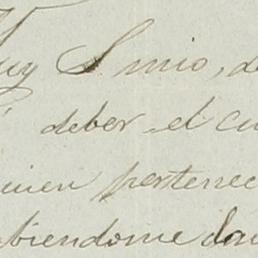 uy S mio, de
deber el cu
uien pertenec
biendome da